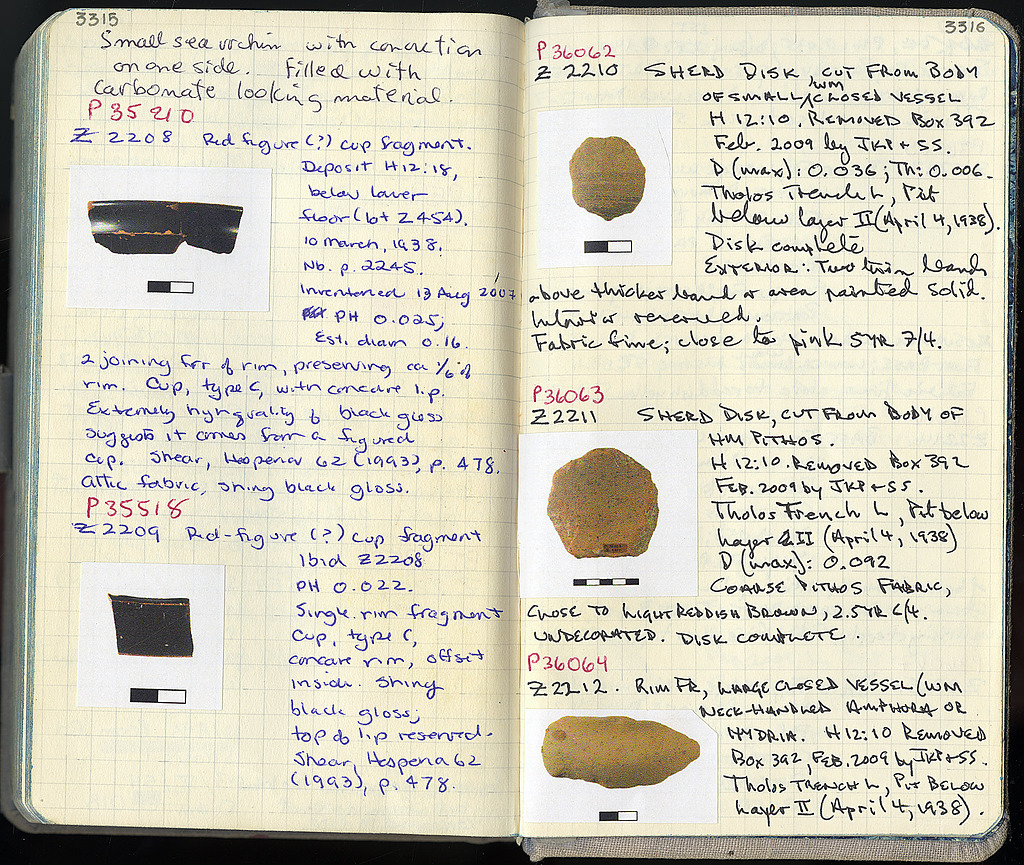 3315
Small sea urchin with concretion
on one side. Filled with
carbonate looking material.
P 35210
Z 2208 Red figure (?) cup fragment.
Deposit H 12:18,
below laver
floor (lot Z 454).
10 march, 1938.
Nb. p. 2245.
Inventoried 13 Aug 2007
PH 0.025;
Est. diam 0.16.
2 joining frr of rim, preserving ca 1/6 of
rim. Cup, type C, with concave lip.
Extremely high quality of black gloss
suggests it comes from a figured
cup. Shear, Hesperia 62 (1993), p. 478.
Attic fabric, shiny black gloss.
P35518
Z 2209 Red-figure (?) cup fragment
Ibid Z2208
PH 0.022.
Single rim fragment
Cup, type C,
concave rim, offset
inside. Shiny
black gloss;
top of lip reserved.
Shear, Hesperia 62
(1993), p. 478.
3316
P36062
Z 2210 SHERD DISK, CUT FROM BODY
OF SMALL/WM CLOSED VESSEL
H 12:10. REMOVED BOX 392
Feb. 2009 by JKP + SS.
D (max): 0.036; Th: 0.006.
Tholos Trench L, Pit
below layer II (April 4, 1938).
Disk complete
EXTERIOR: Two thin bands
above thicker band or area painted solid.
Interior reserved.
Fabric fine; close to pink 5YR 7/4.
P36063
Z2211 SHERD DISK, CUT FROM BODY OF
HM PITHOS.
H 12:10. REMOVED BOX 392
FEB. 2009 by JKP + SS.
Tholos Trench L, Pit below
layer II (April 4, 1938)
D (max): 0.092
COARSE PITHOS FABRIC,
CLOSE TO LIGHT REDDISH BROWN, 2.5YR 6/4.
UNDECORATED. DISK COMPLETE.
P36064
Z2212. RIM FR, LARGE CLOSED VESSEL (WM
NECK-HANDLED AMPHORA OR
HYDRIA. H 12:10 REMOVED
Box 392, FEB. 2009 by JKP + SS.
Tholos TRENCH L, PIT BELOW
Layer II (April 4, 1938).